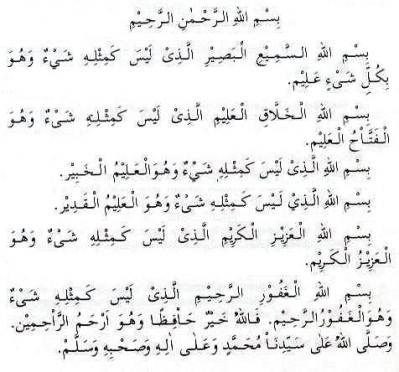 بِسْمِ اللهِ الرَّحْمٰنِ الرَّحِيْمِ
بِسْمِ اللهِ السَّمِيْعِ الْبَصِيْرِ الَّذِىْ لَيْسَ كَمِثْلِهٖ شَىْءٌ وَهُوَ
بِكُلِّ شَىْءٍ عَلِيْم.
بِسْمِ اللهِ الْخَلَّاقِ الْعَلِيْمِ الَّذِىْ لَيْسَ كَمِثْلِهٖ شَىْءٌ وَهُوَ
الْفَتَّاحُ الْعَلِيْم.
بِسْمِ اللهِ الَّذِىْ لَيْسَ كَمِثْلِهٖ شَيْءٌ وَهُوَالْعَلِيْمُ الْخَبِيْر.
بِسْمِ اللهِ الَّذِيْ لَيْسَ كَمِثْلِهٖ شَىْءٌ وَهُوَ الْعَلِيْمُ الْقَدِيْر.
بِسْمِ اللهِ الْعَزِيْزِ الْكَرِيْمِ الَّذِىْ لَيْسَ كَمِثْلِهٖ شَىْءٌ وَهُوَ
الْعَزِيْزُ الْكَرِيْم.
بِسْمِ اللهِ الْغَفُوْرِ الرَّحِيْمِ الَّذِىْ لَيْسَ كَمِثْلِهٖ شَىْءٌ
وَهُوَالْغَفُوْرُالرَّحِيْم. فَاللهُ خَيْرٌ حَافِظًا وَهُوَ اَرْحَمُ الرَّاحِمِيْن.
وَصَلَّى اللهُ عَلٰى سَيِّدِنَا مُحَمَّدٍ وَعَلٰى اٰلِهٖ وَصَحْبِهٖ وَسَلَّمْ.